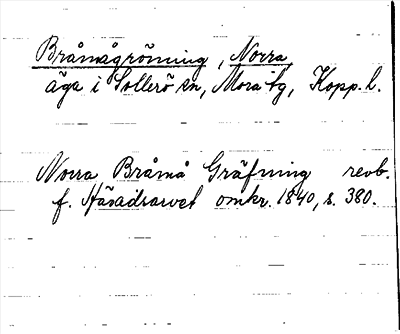 Bråmågrövning, Norra
äga i Sollerö sn, Mora tg, Kopp. l.
Norra Bråmå Gräfning revb.
f. Häradsarvet omkr. 1840, s. 380.